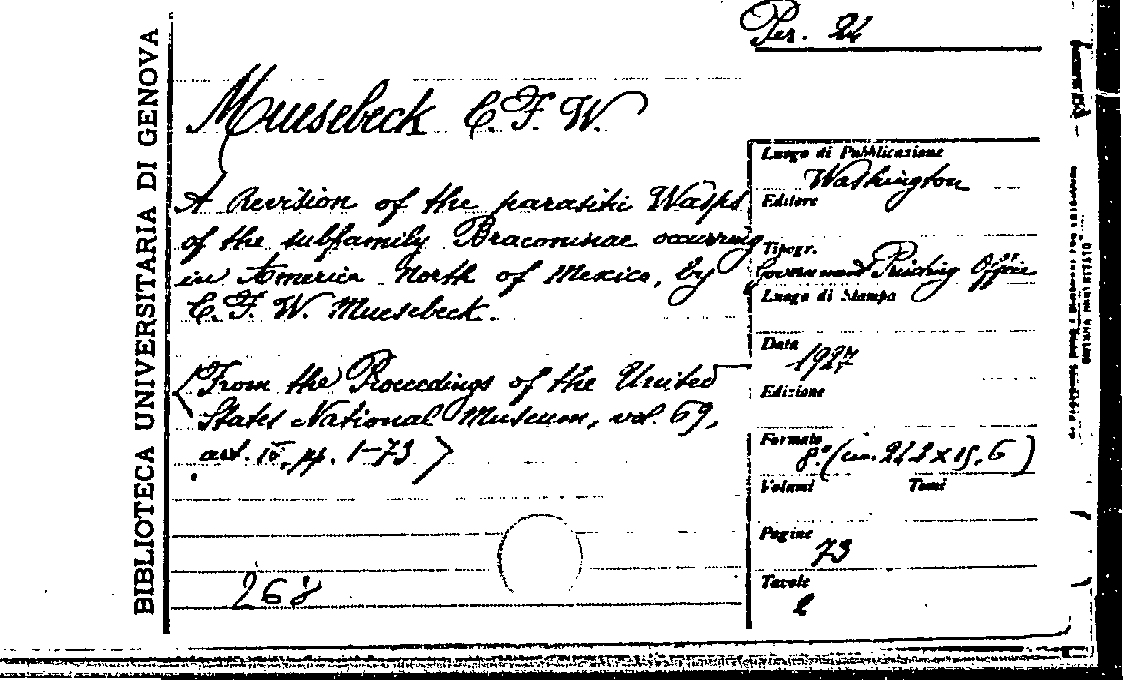 Per. 24
BIBLIOTECA UNIVERSITARIA DI GENOVA
Muesebeck C. F. W.
A Revision of the parasitic Wasps
of the subfamily Braconinae occurring
in America North of Mexico, by
C. F. W. Muesebeck.
(From the Proceedings of the United
States National Museum, vol. 69,
art. pp. 1-73)
268
Luogo di Pubblicazione
Washington
Editore
Tipogr.
Government Printing Office
Luogo di Stampa
Data
1927
Edizione
Formato
8° (cm. × 15,6)
Volumi Tomi
Pagine
73
Tavole
2